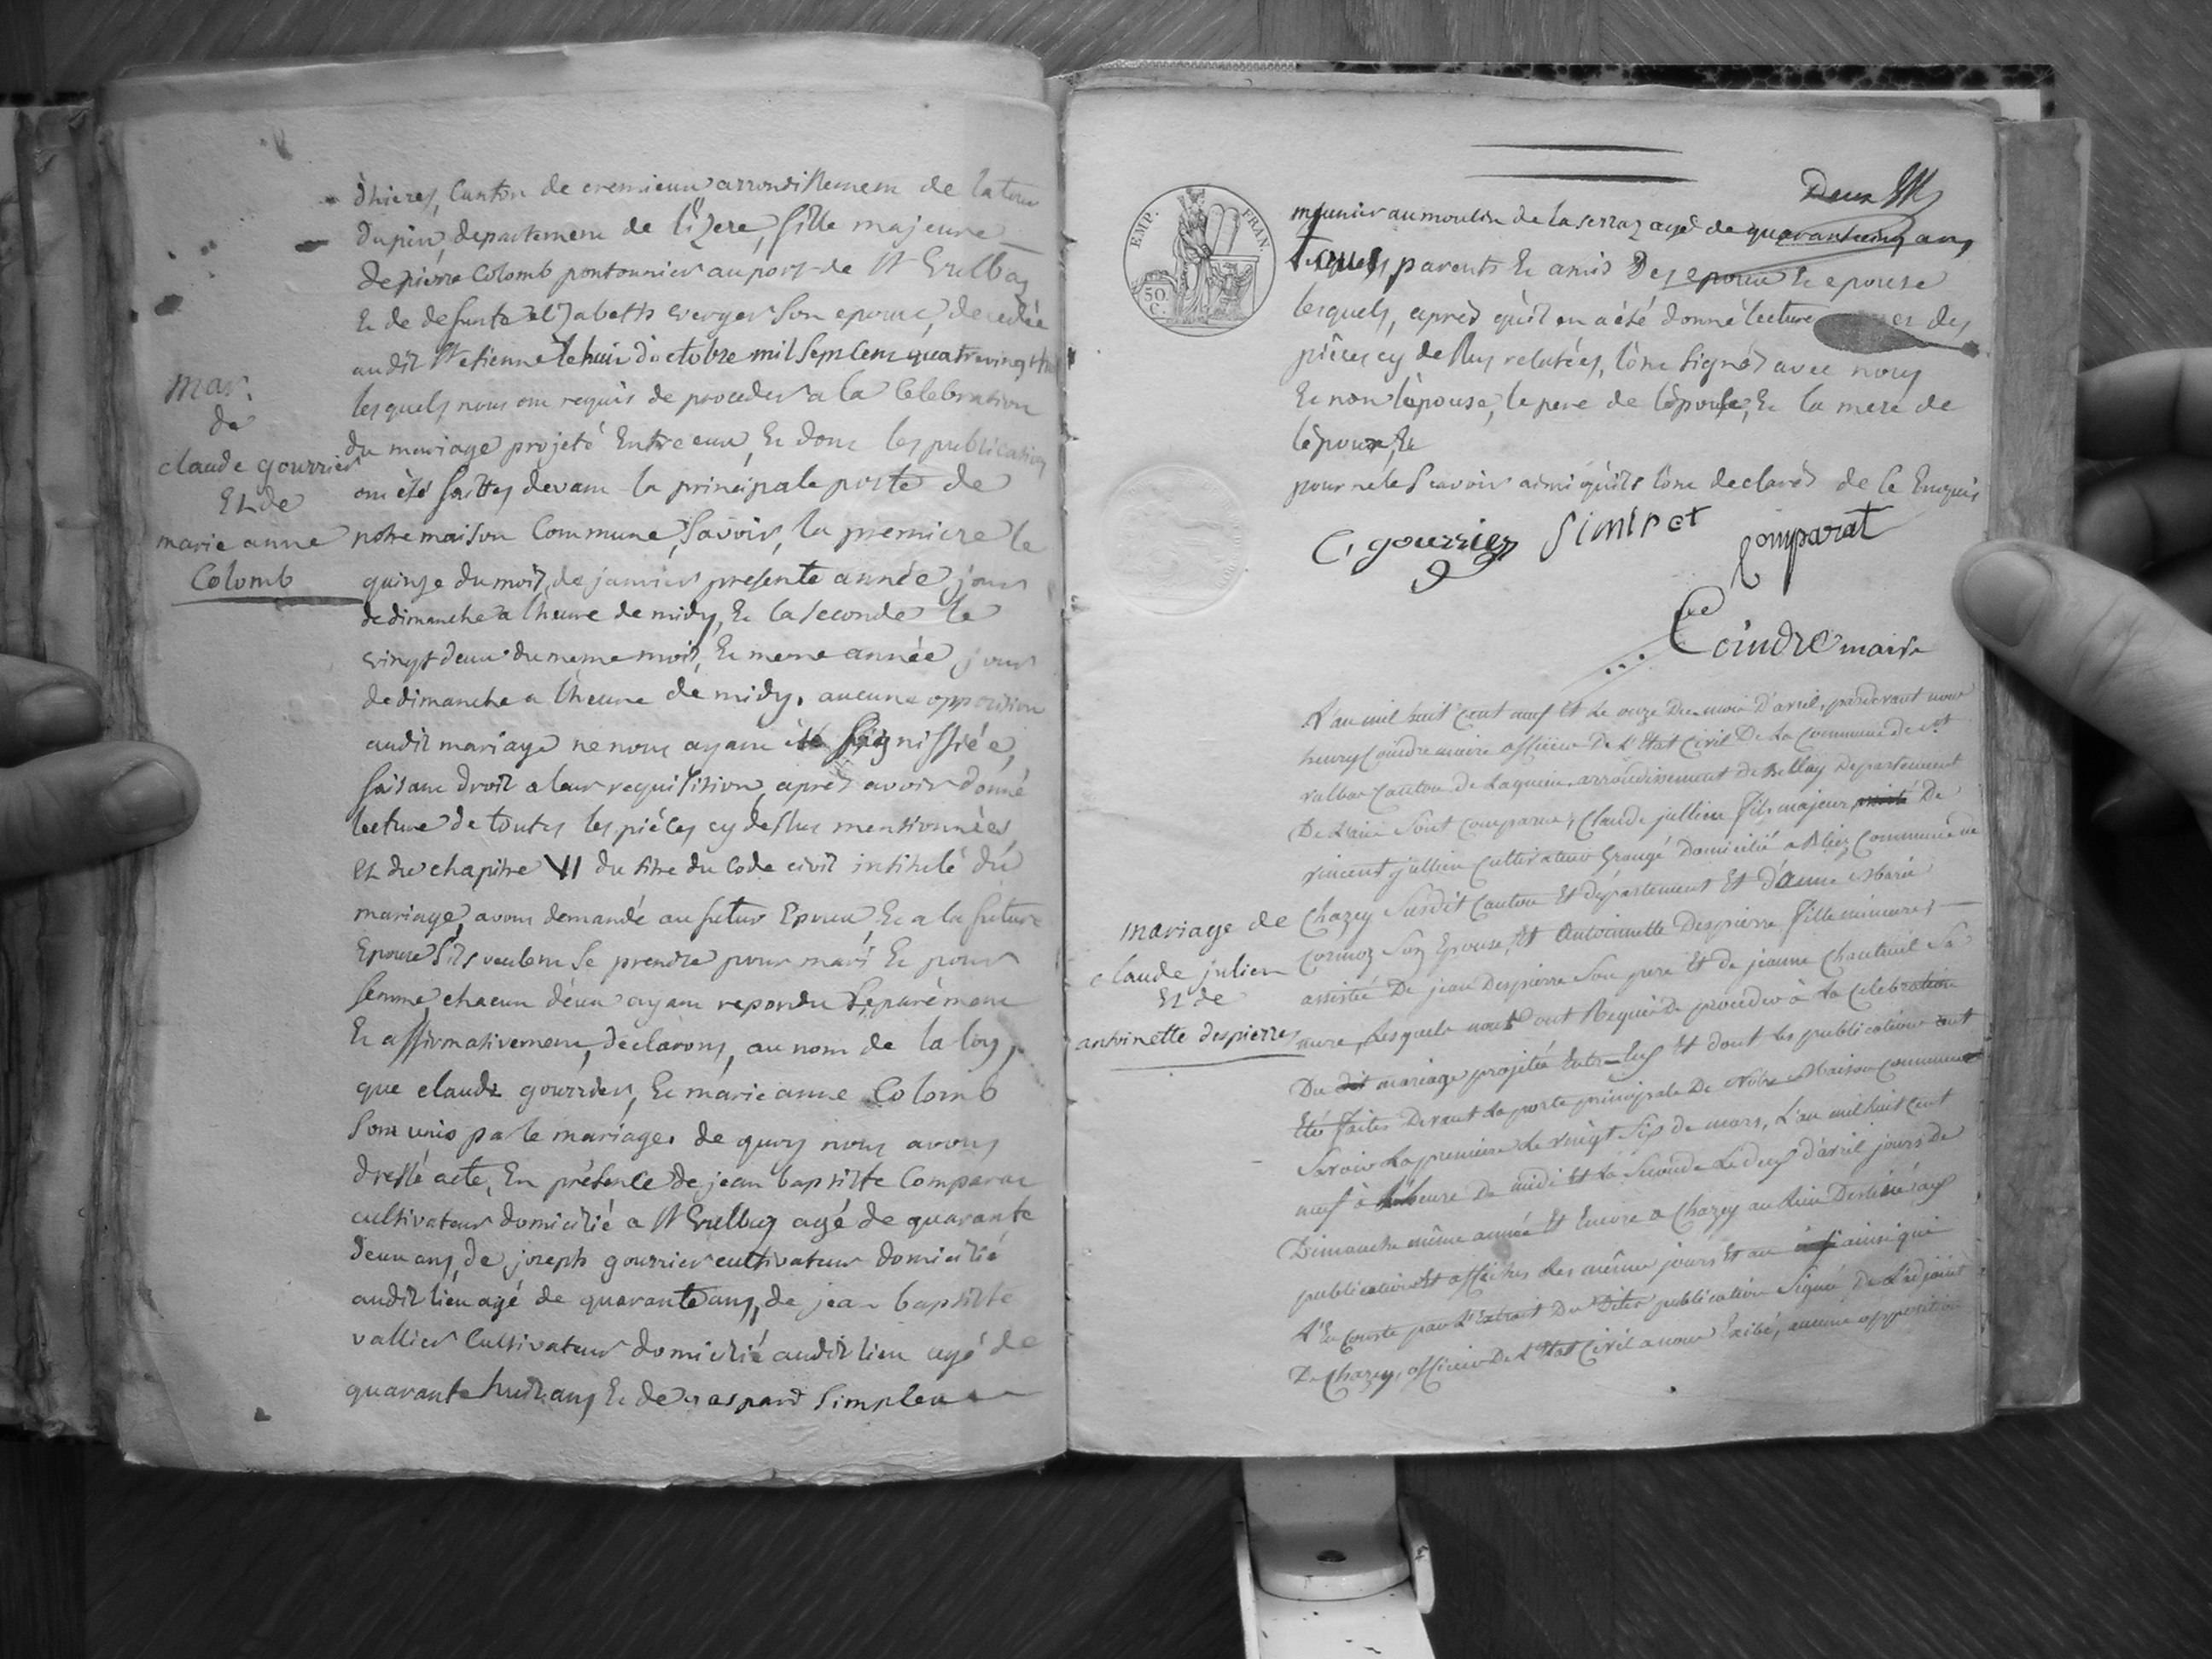 mar.
de
claude gourrier
Et de
marie anne
Colomb
d'hieres, Canton de cremieux arrondissement de la tour
du pin, departement de l'izere, fille majeure
de pierre Colomb pontonnier au port de St Vulbas
Et de defunte elizabeth verger son epouse, decedée
audit St etienne le huit d'octobre mil sept cent quatre vingt
lesquels nous ont requis de proceder a la Celebration
du mariage projeté Entre eux, Et dont les publications
ont été faittes devant la principale porte de
notre maison Commune, savoir, la premiere le
quinze du mois de janvier presente année, jour
de dimanche a l'heure de midy, Et la seconde le
vingt deux du meme mois, Et meme année jour
de dimanche a l'heure de midy. aucune opposition
audit mariage ne nous ayant été signiffiée,
faisant droit a leur requisition, après avoir donné
lecture de toutes les piéces cy dessus mentionnées
Et du chapitre VI du titre du Code civil intitulé du
mariage, avons demandé au futur Epoux, Et a la future
Epouse s'ils veulent se prendre pour mari Et pour
femme, chacun d'eux ayant repondu separément
Et affirmativement, declarons, au nom de la loy,
que claude gourrier, Et marie anne Colomb
sont unis par le mariage. de quoy nous avons
dressé acte, En présence de jean baptiste Comparat
cultivateur domicilié a St Vulbas agé de quarante
deux ans, de joseph gourrier cultivateur domicilié
audit lieu agé de quarante ans, de jean baptiste
vallier Cultivateur domicilié audit lieu agé de
quarante huit ans Et de gaspard simplex
EMP. FRAN.
50. C.
Deux
meunier au moulin de la serraz agé de quarante cinq ans
tous parents Et amis des epoux Et epouse
lesquels, après qu'il en a été donné lecture des
piéces cy dessus relatées, l'ont signés avec nous
Et non l'épouse, le pere de l'épouse, Et la mere de
l'époux, Et
pour ne le scavoir ainsi qu'ils l'ont declarés de ce Enquis
C. gourrier Simplet Comparat
Coindre maire
mariage de
claude julien
Et de
antoinette despierres
L'an mil huit Cent neuf Et Le onze Du mois D'avril, pardevant nous
henry Coindre maire officier De L'Etat Civil De La Commune de St
vulbas Canton de Lagnieu arrondissement de Bellay Departement
De L'ain Sont Comparus, Claude jullien fils majeur De
vincent jullien Cultivateur Grangé Domicilié a Commune de
Chazey Susdit Canton Et département Et d'anne Marie
Cormoz Son Epouse, Et Antoinette Despierre fille mineure,
assistée De jean Despierre Son pere Et de jeanne Chanteuil Sa
mere, Lesquels nous ont Requis de proceder à La Celebration
Du dit mariage projetée Entre Eux Et dont les publications ont
Eté faites Devant La porte principale De Notre Maison Commune
Savoir La premiere Le vingt Six de mars, L'an mil huit Cent
neuf à L'heure De midi Et La Seconde Le deux d'avril jours De
Dimanche même année Et Encore a Chazey au Lieu Destiné aux
publications Et affiches Les même jours Et an ainsi qui
L'En Conste par L'Extrait Du Dites publication Signée De L'adjoint
De Chazey, officier De L'Etat Civil a nous Exibé, aucune opposition